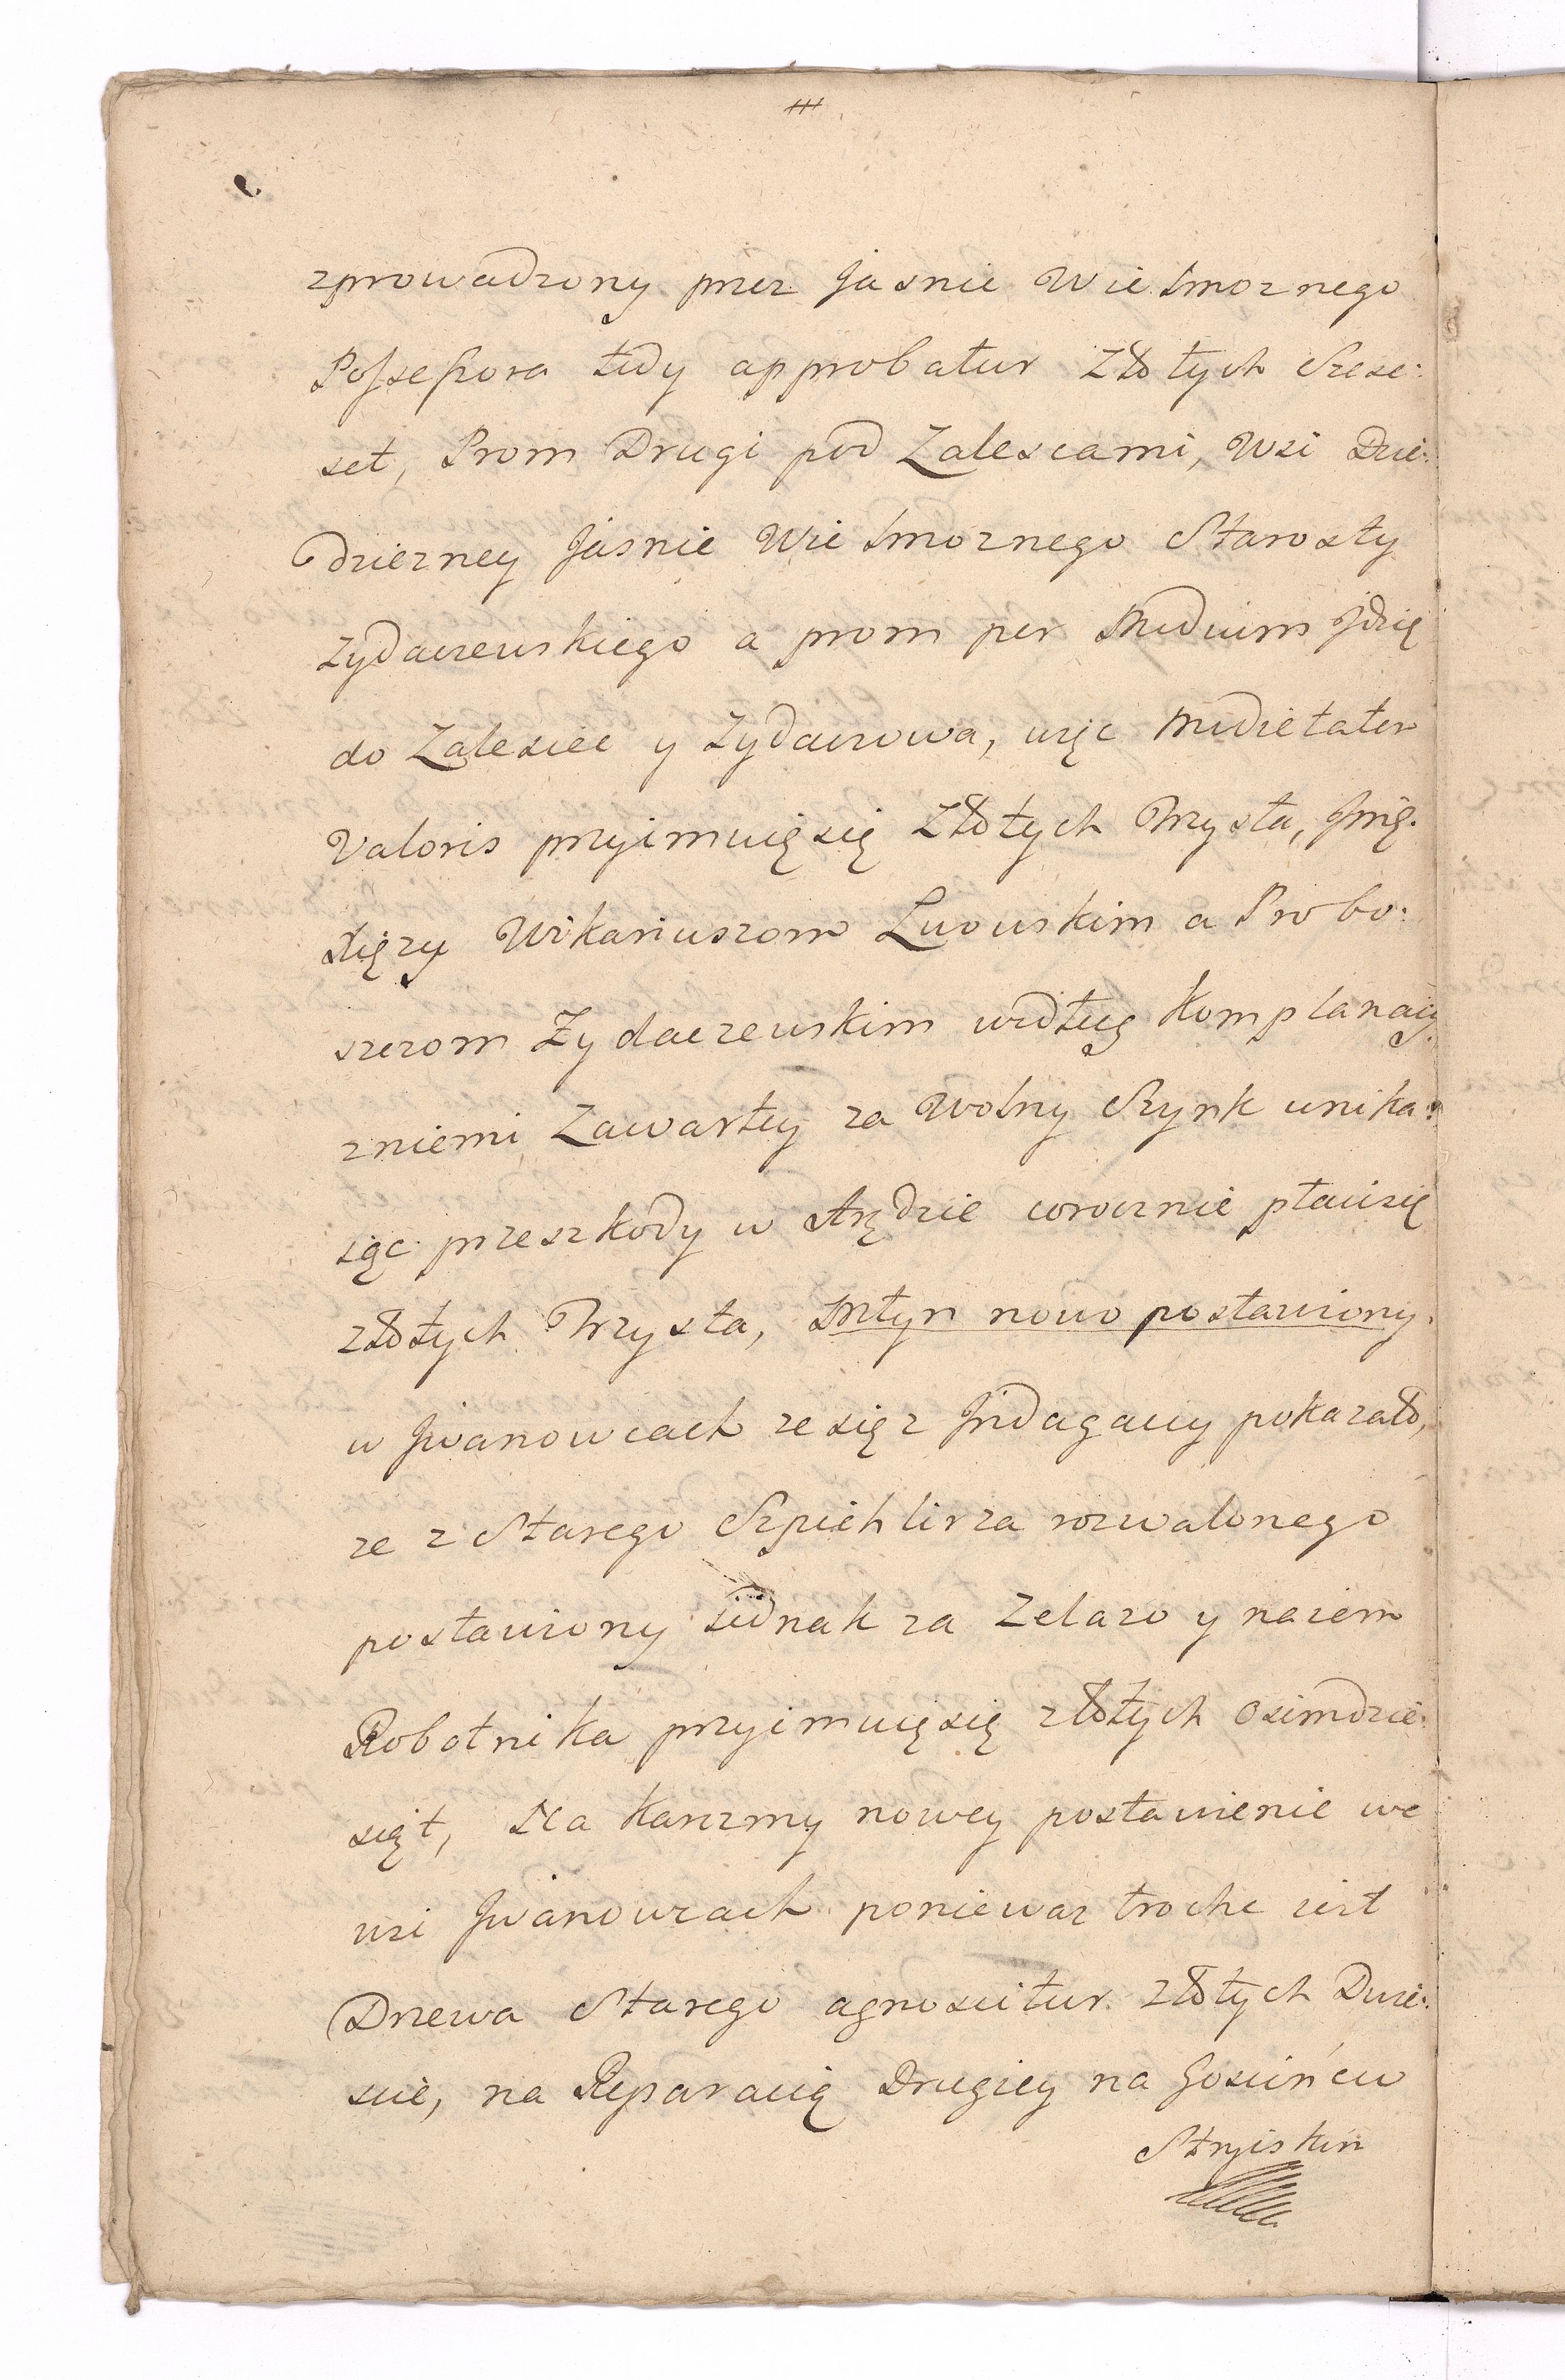 zprowadzony przez Jasnie Wielmoznego
Possessora tedy approbatur Złotych Szesc:
set, Prom Drugi pod Zalescami, Wsi Dzie:
dziczney Jasnie Wielmoznego Starosty
Zydaczewskiego a prom per Medium Jdzię
do Zalesiec y Zydaczowa, więc Medietatem
Valoris przyimuię się Złotych Trzysta, Jmę.
Xięzy Wikariuszom Lwowskim a Probo:
szczom Zydaczewskim według Komplanacy.
zniemi Zawartey za Wolny Szynk unika:
iąc przeszkody w Arędzie corocznie płacisię
złotych Trzysta, Młyn nowo postawiony.
w Jwanowcach ze się z Jndagacyi pokazało,
ze z Starego Szpichlirza rozwalonego
postawiony iednak za Zelazo y naiem
Robotnika przyimuię się złotych Osimdzie:
siąt, Na Karczmy nowey postawienie we
wsi Jwanowcach poniewaz troche iest
Drzewa Starego agnoscitur złotych Dwie:
scie, na Reparacię Drugiey na Goscińcu
Stryiskim